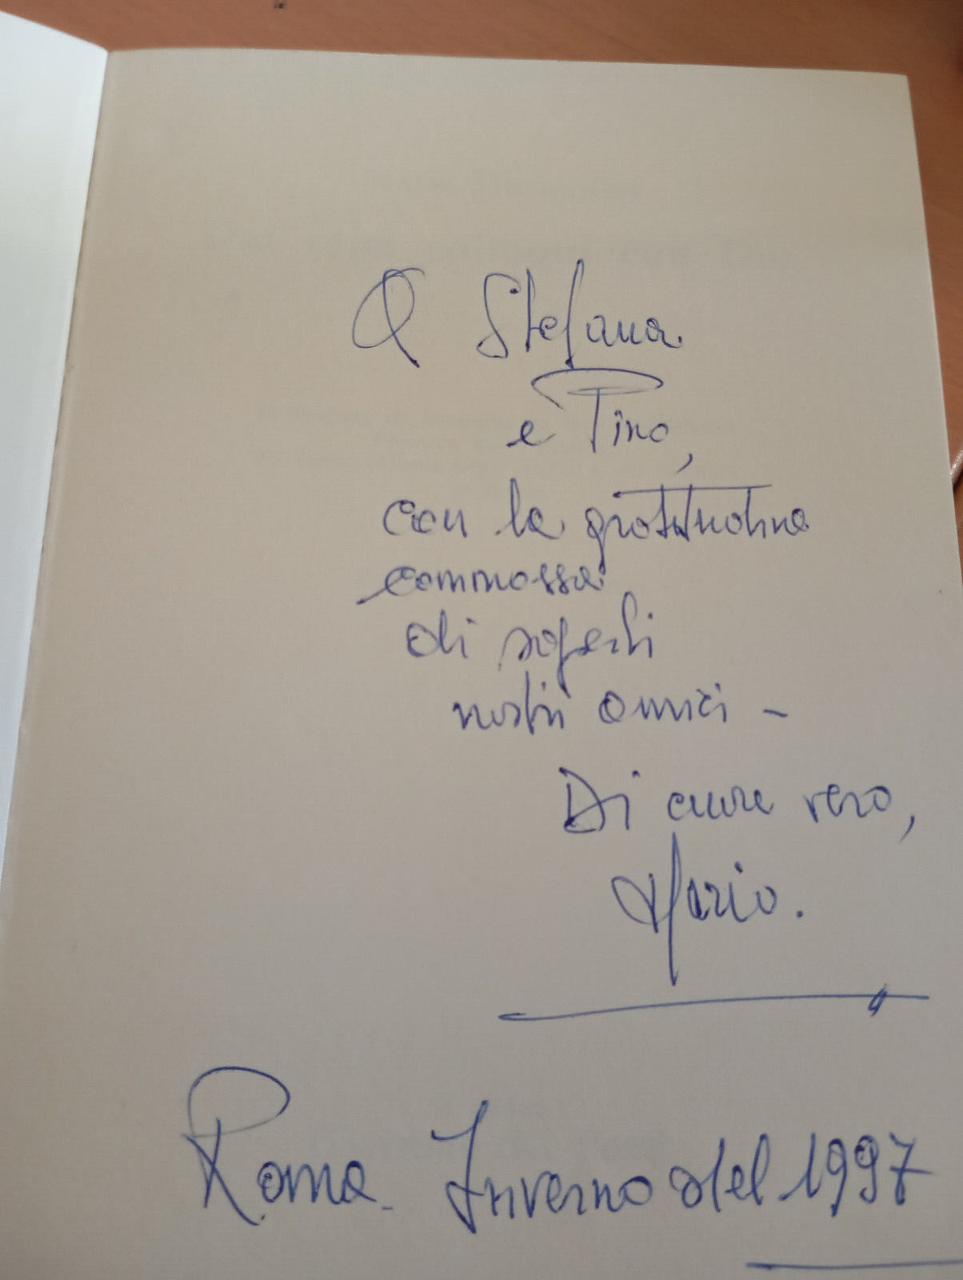 A Stefana
e Tino,
con la gratitudine
commossa
di saperli
nostri amici -
Di cuore vero,
Mario.
Roma. Inverno del 1997